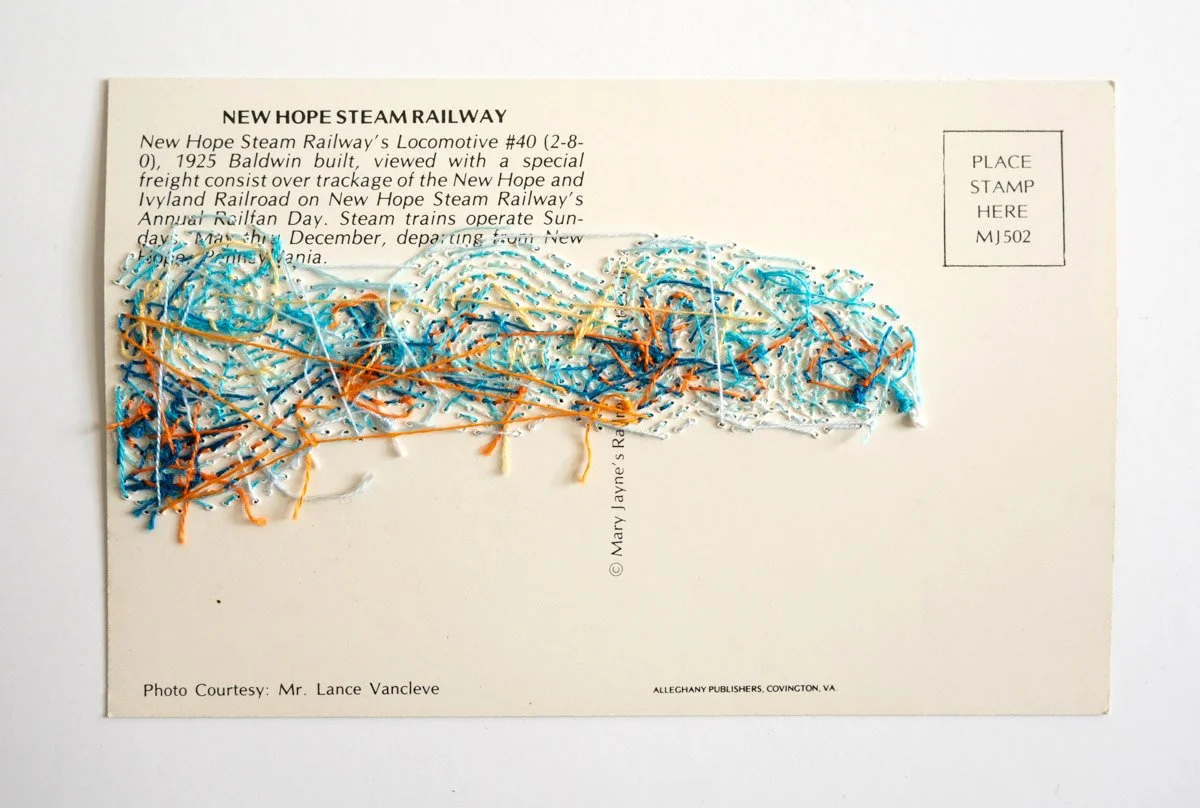 NEW HOPE STEAM RAILWAY
New Hope Steam Railway's Locomotive #40 (2-8-
0), 1925 Baldwin built, viewed with a special
freight consist over trackage of the New Hope and
Ivyland Railroad on New Hope Steam Railway's
Annual Railfan Day. Steam trains operate Sun-
days, May thru December, departing from New
Hope, Pennsylvania.
PLACE
STAMP
HERE
MJ502
© Mary Jayne's
Photo Courtesy: Mr. Lance Vancleve
ALLEGHANY PUBLISHERS, COVINGTON, VA.